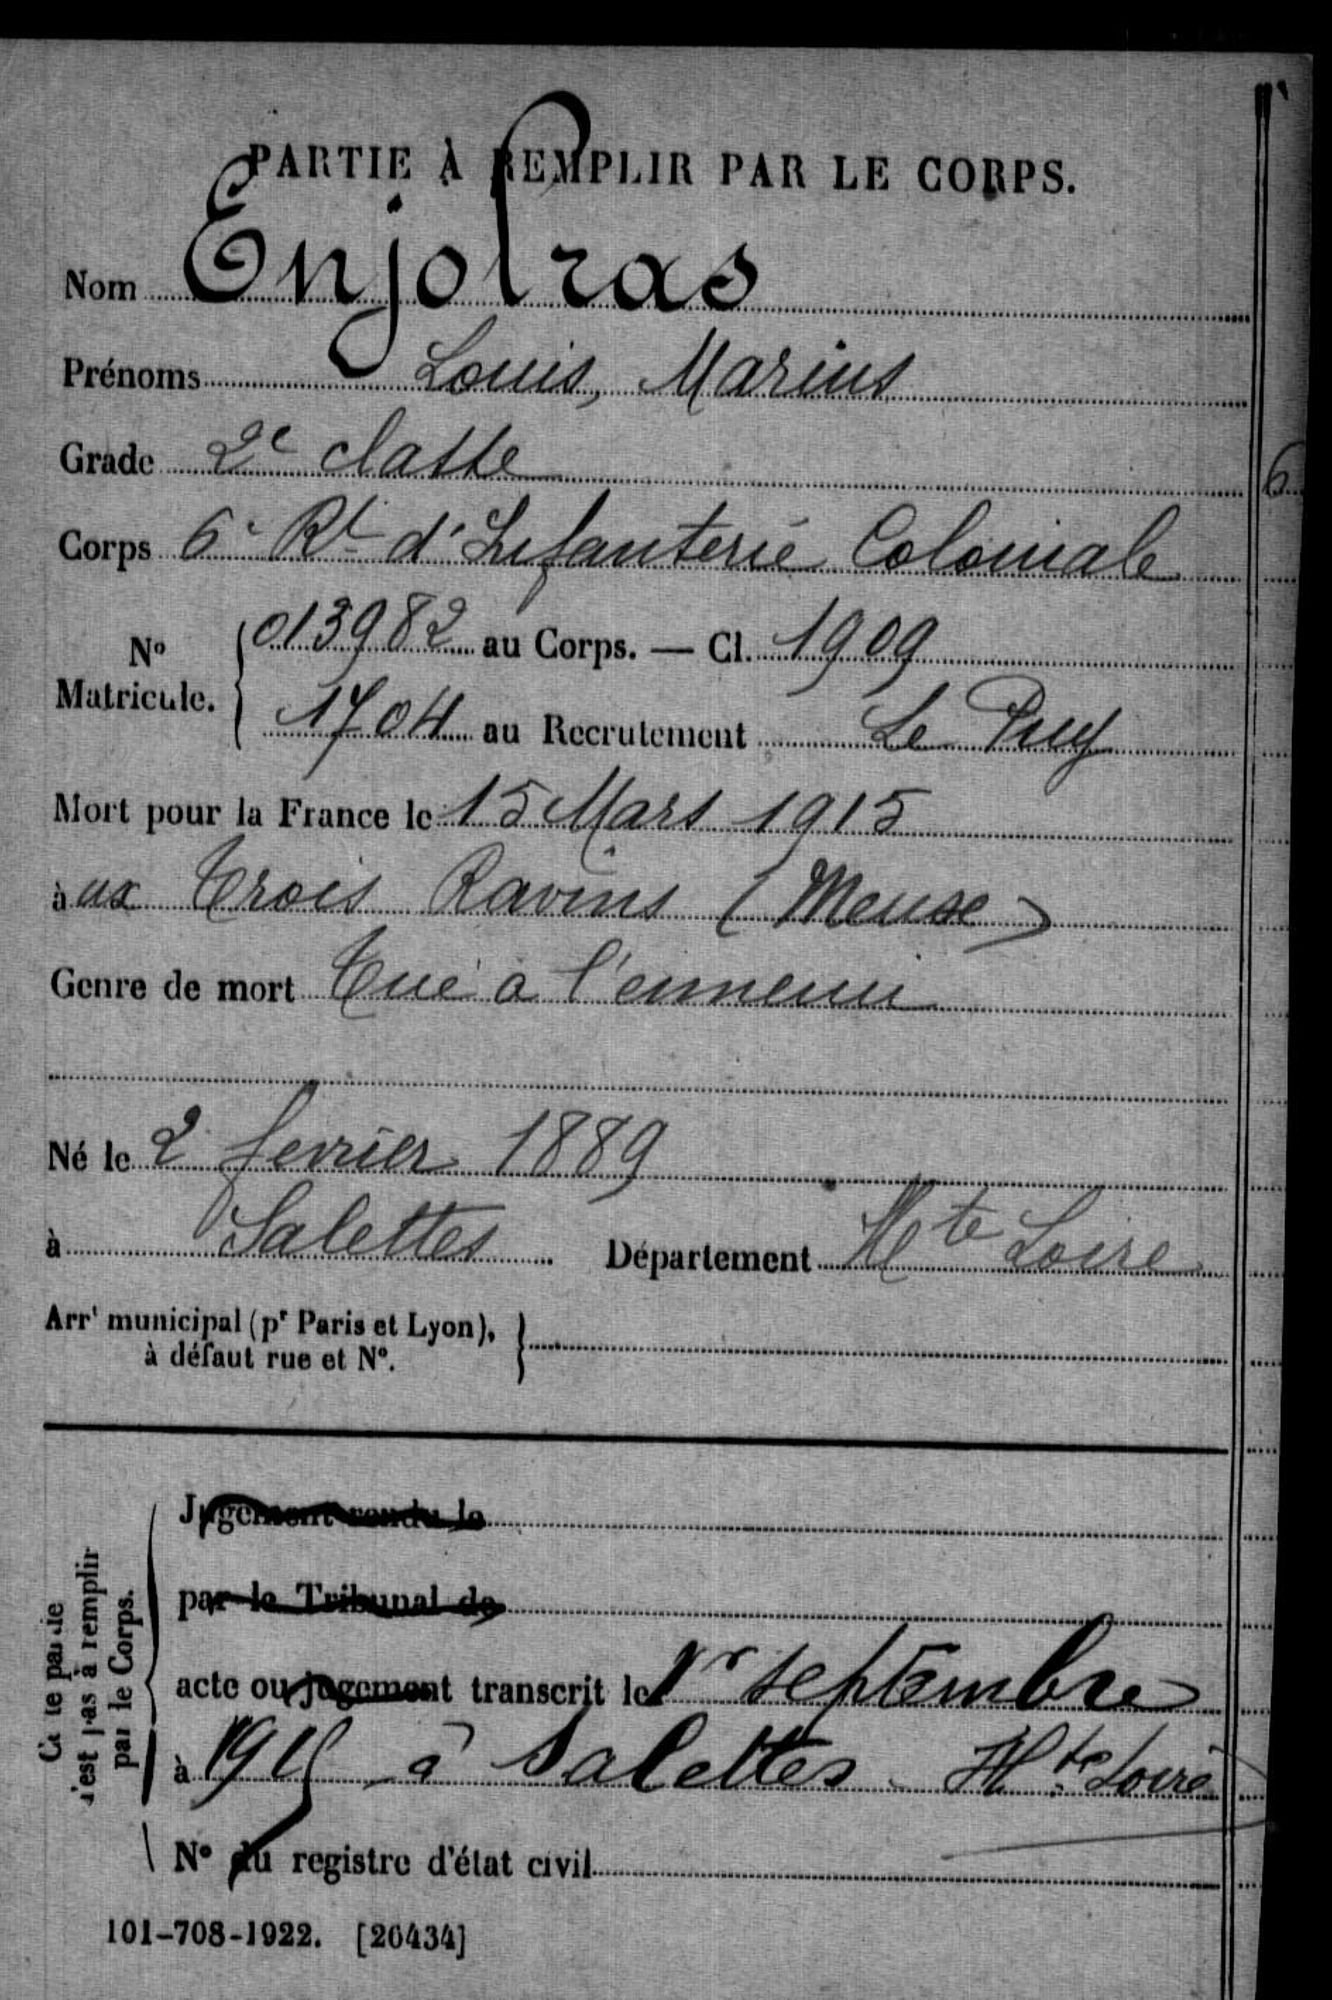 PARTIE À REMPLIR PAR LE CORPS.
Nom Enjolras
Prénoms Louis, Marius
Grade 2e classe
Corps 6e Rt d'Infanterie Coloniale
No Matricule. { 013982 au Corps. — Cl. 1909
1704 au Recrutement Le Puy
Mort pour la France le 15 Mars 1915
à ux Trois Ravins (Meuse)
Genre de mort Tué à l'ennemi
Né le 2 fevrier 1889
à Salettes Département Hte Loire
Arrt municipal (pr Paris et Lyon),
à défaut rue et No.
Jugement rendu le
par le Tribunal de
acte ou jugement transcrit le 1r septembre
à 1915 à Salettes Hte Loire
No du registre d'état civil
Cette partie
n'est pas à remplir
par le Corps.
101-708-1922. [26434]
6